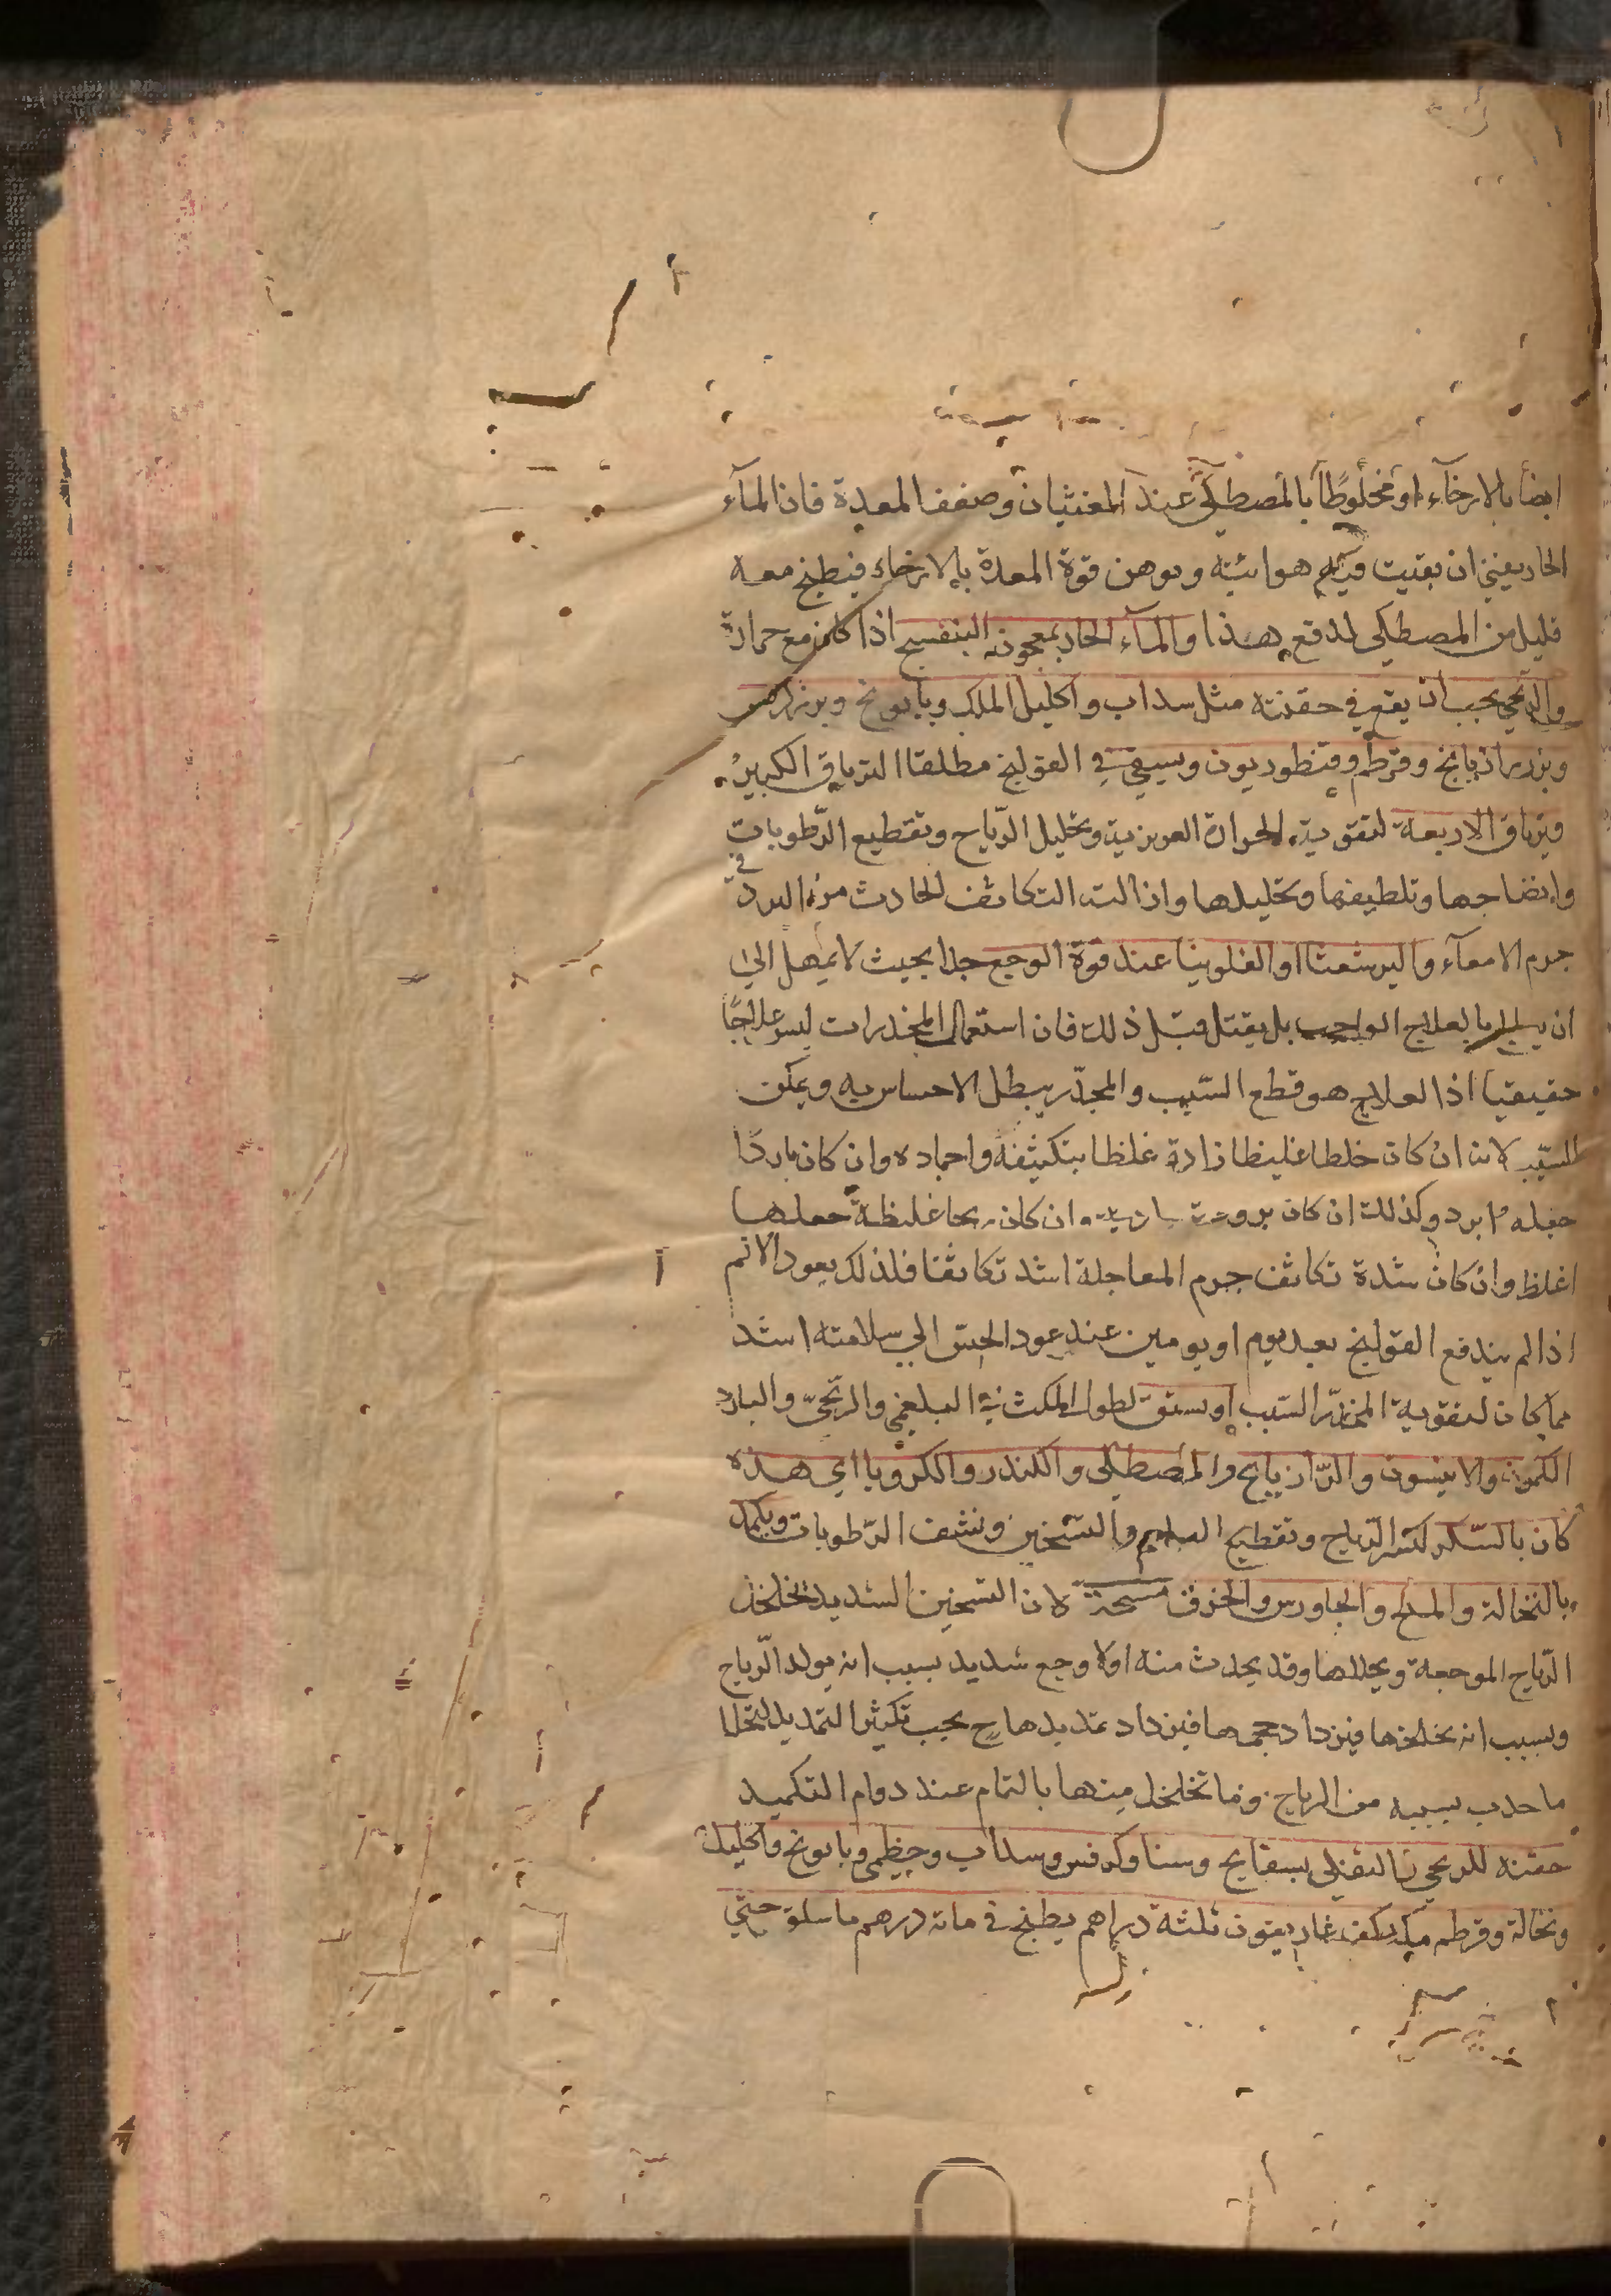 ايضا بالارخآء او مخلوطًا بالمصطكى عند الغثيان وضعف المعدة فان المآء
الحار يغثي ان بقيت فيه هوائية ويوهن قوة المعدة بالارخاء فيطبخ معه
قليل من المصطكى لدفع هذا والمآء الحار بمعجون البنفسج اذا كان مع حرارة
والريحي يجب ان يقع في حقنته مثل سداب واكليل الملك وبابونج وبزر كرفس
وبزر رازيانج وقرطم وقنطوريون ويسقى في القولنج مطلقا الترياق الكبير
وترياق الاربعة لتقوية الحرارة الغريزية وتحليل الرّياح وتقطيع الرّطوبات
وانضاجها وتلطيفها وتحليلها وازالت التكاثف الحادث من البرد في
جرم الامعآء والبرشعثا او الفلونيا عند قوة الوجع جدا بحيث لا يمهل الى
ان بالعلاج الواجب بل يقتل قبل ذلك فان استعمال المخدرات ليس علاجًا
حقيقيا اذ العلاج هو قطع السّبب والمخدّر يبطل الاحساس به ويمكن
السبب لانه ان كان خلطا غليظا زاده غلظا بتكثيفه واجماده وان كان باردًا
جعله ابرد وكذلك ان كان برودة ساذجة وان كان ريحا غليظة جعلها
اغلظ وان كان شدة تكاثف جرم المعا جعله اشد تكاثفا فلذلك يعود الالم
اذا لم يندفع القولنج بعد يوم او يومين عند عود الحسّ الى سلامته اشد
مما كان لتقوية المخدّر السبب او يستف لطول المكث في البلغمي والريحيّ والبارد
الكمون والانيسون والرّازيانج والمصطكى والكندر والكرويا اي هذه
كان بالسّكر لكسر الرّياح وتقطيع البلغم والتسخين ونشف الرّطوبات ويكمد
بالنخالة والملح والجاورس والخزف مسخنة لان التسخين الشديد يخلخل
الرّياح الموجعة ويحللها وقد يحدث منه اولا وجع شديد بسبب انه يولد الرّياح
وبسبب انه يخلخلها فيزداد حجمها فيزداد تمديدها ح يجب تكثير التمديد ليتحلل
ما حدث بسببه من الرياح وما تخلخل منها بالتمام عند دوام التكميد
حقنة للريحي والثفلي بسفايج وسنا وكرفس وسداب وخطمى وبابونج واكليل
ونخالة وقرطم من كل كف غاريقون ثلثة دراهم يطبخ في مائة درهم ما سلق حتى